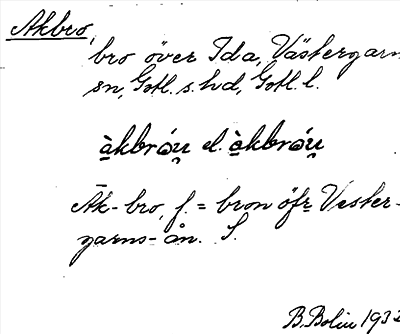 Åkbro,
bro över Ida, Västergarn
sn, Gotl. s. hd, Gotl. l.
àkbrǫ́u̯ el. àkbrǫ́u̯
Āk-bro, f. = bron öfr Vester-
garns-ån. S.
B. Bolin 1932